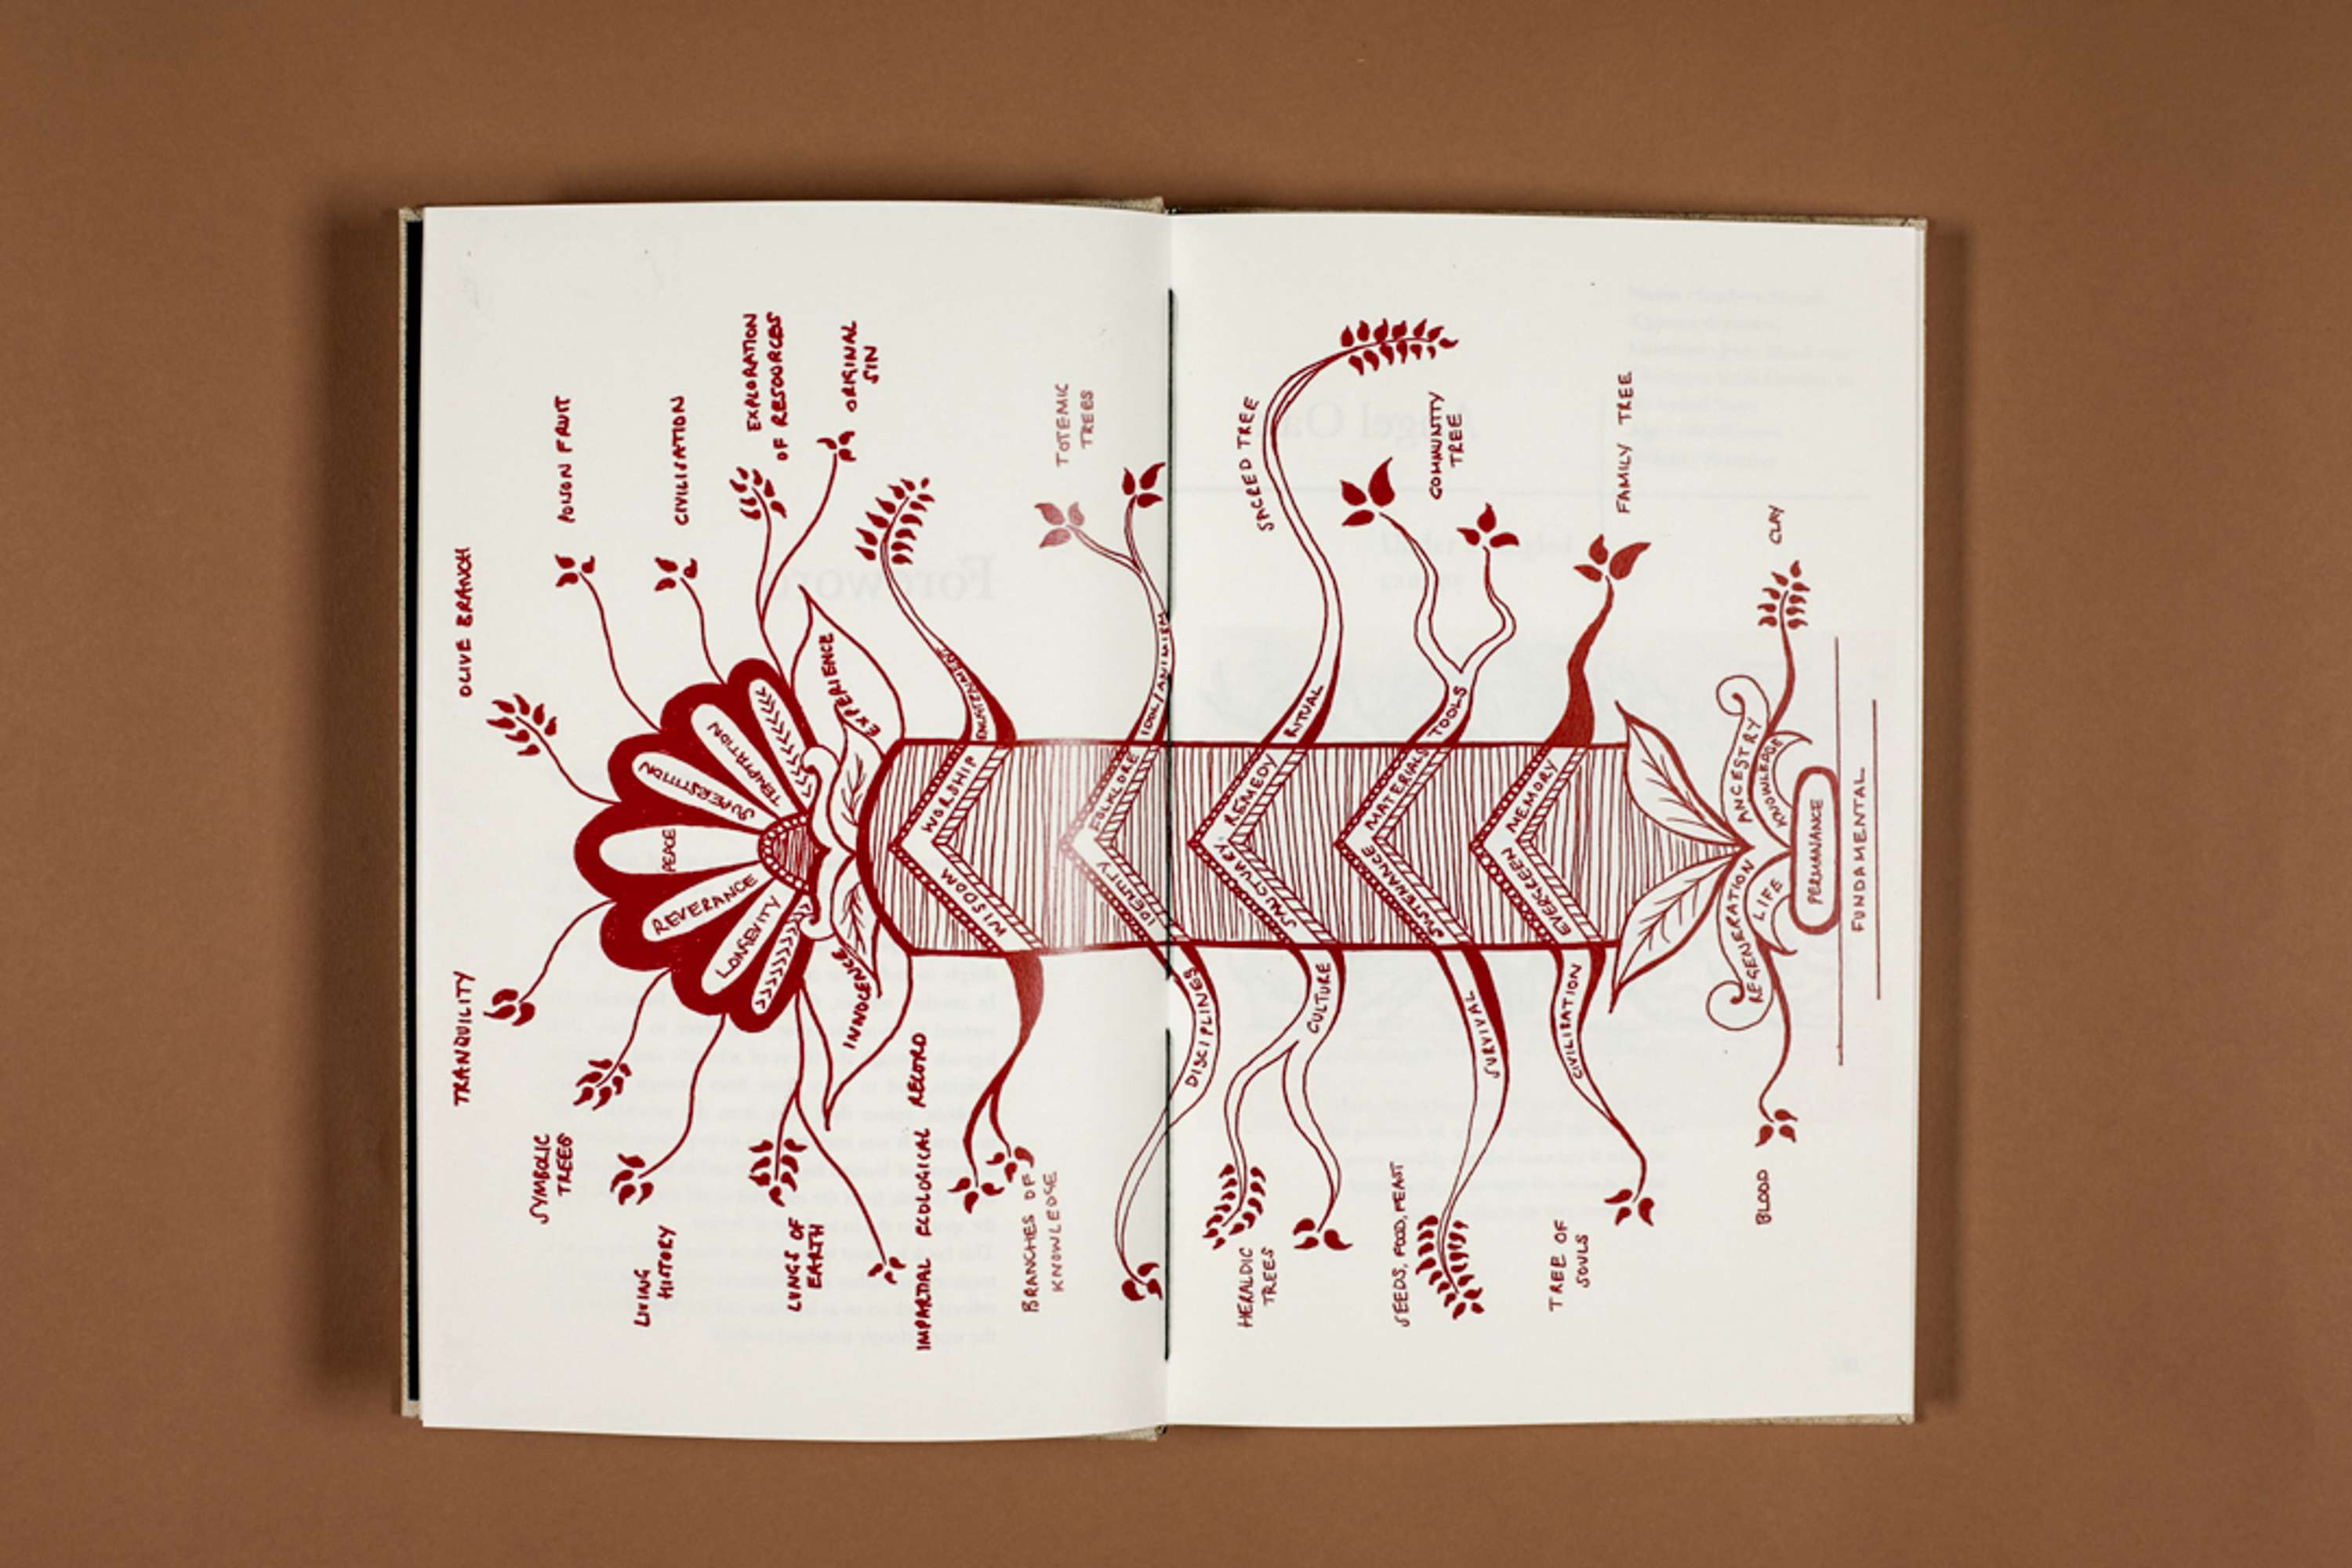 OLIVE BRANCH
TRANQUILITY
POISON FRUIT
SYMBOLIC
TREES
CIVILISATION
LIVING
HISTORY
EXPLORATION
OF RESOURCES
ORIGINAL
SIN
LUNGS OF
EARTH
IMPARTIAL ECOLOGICAL RECORD
PEACE
SUPERSTITION
TEMPTATION
REVERANCE
LONGEVITY
EXPERIENCE
INNOCENCE
WISDOM
WORSHIP
BRANCHES OF
KNOWLEDGE
TOTEMIC
TREES
IDENTITY
FOLKLORE
IDOL/ANIMISM
DISCIPLINES
SACRED TREE
SANCTUARY
REMEDY
RITUAL
CULTURE
HERALDIC
TREES
COMMUNITY
TREE
SUSTENANCE
MATERIALS
TOOLS
SURVIVAL
SEEDS, FOOD, FEAST
EVERGREEN
MEMORY
FAMILY TREE
CIVILISATION
TREE OF
SOULS
CLAY
REGENERATION
ANCESTRY
LIFE
KNOWLEDGE
BLOOD
PERMANANCE
FUNDAMENTAL
Foreword
Angel Oak